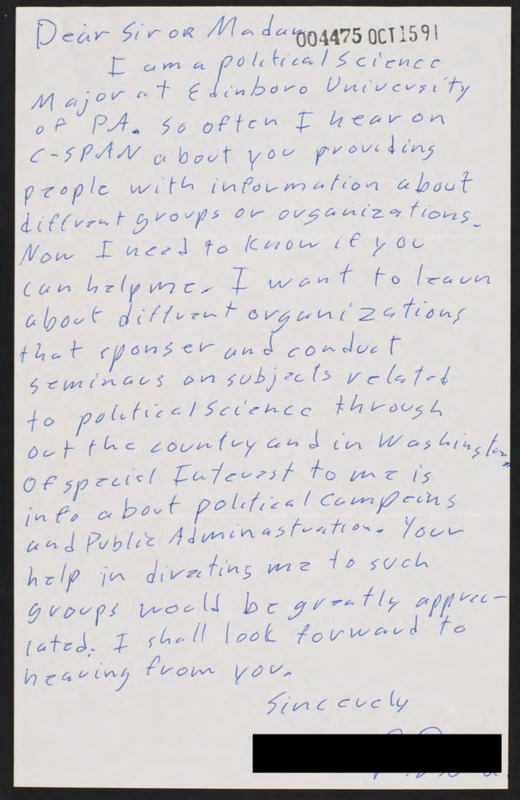 Dear Sir or Madam
004475 OCT 15 91
I am a political science
Major at Edinboro University
of PA. So often I hear on
C-SPAN about you providing
people with information about
diffrent groups or organizations.
Now I need to know if you
can help me. I want to learn
about diffrent organizations
that sponser and conduct
seminars on subjects related
to political science through
out the country and in Washington.
Of special Interest to me is
info about political campeins
and Public Adminastration. Your
help in directing me to such
groups would be greatly apprec-
iated. I shall look forward to
hearing from you.
Sincerely